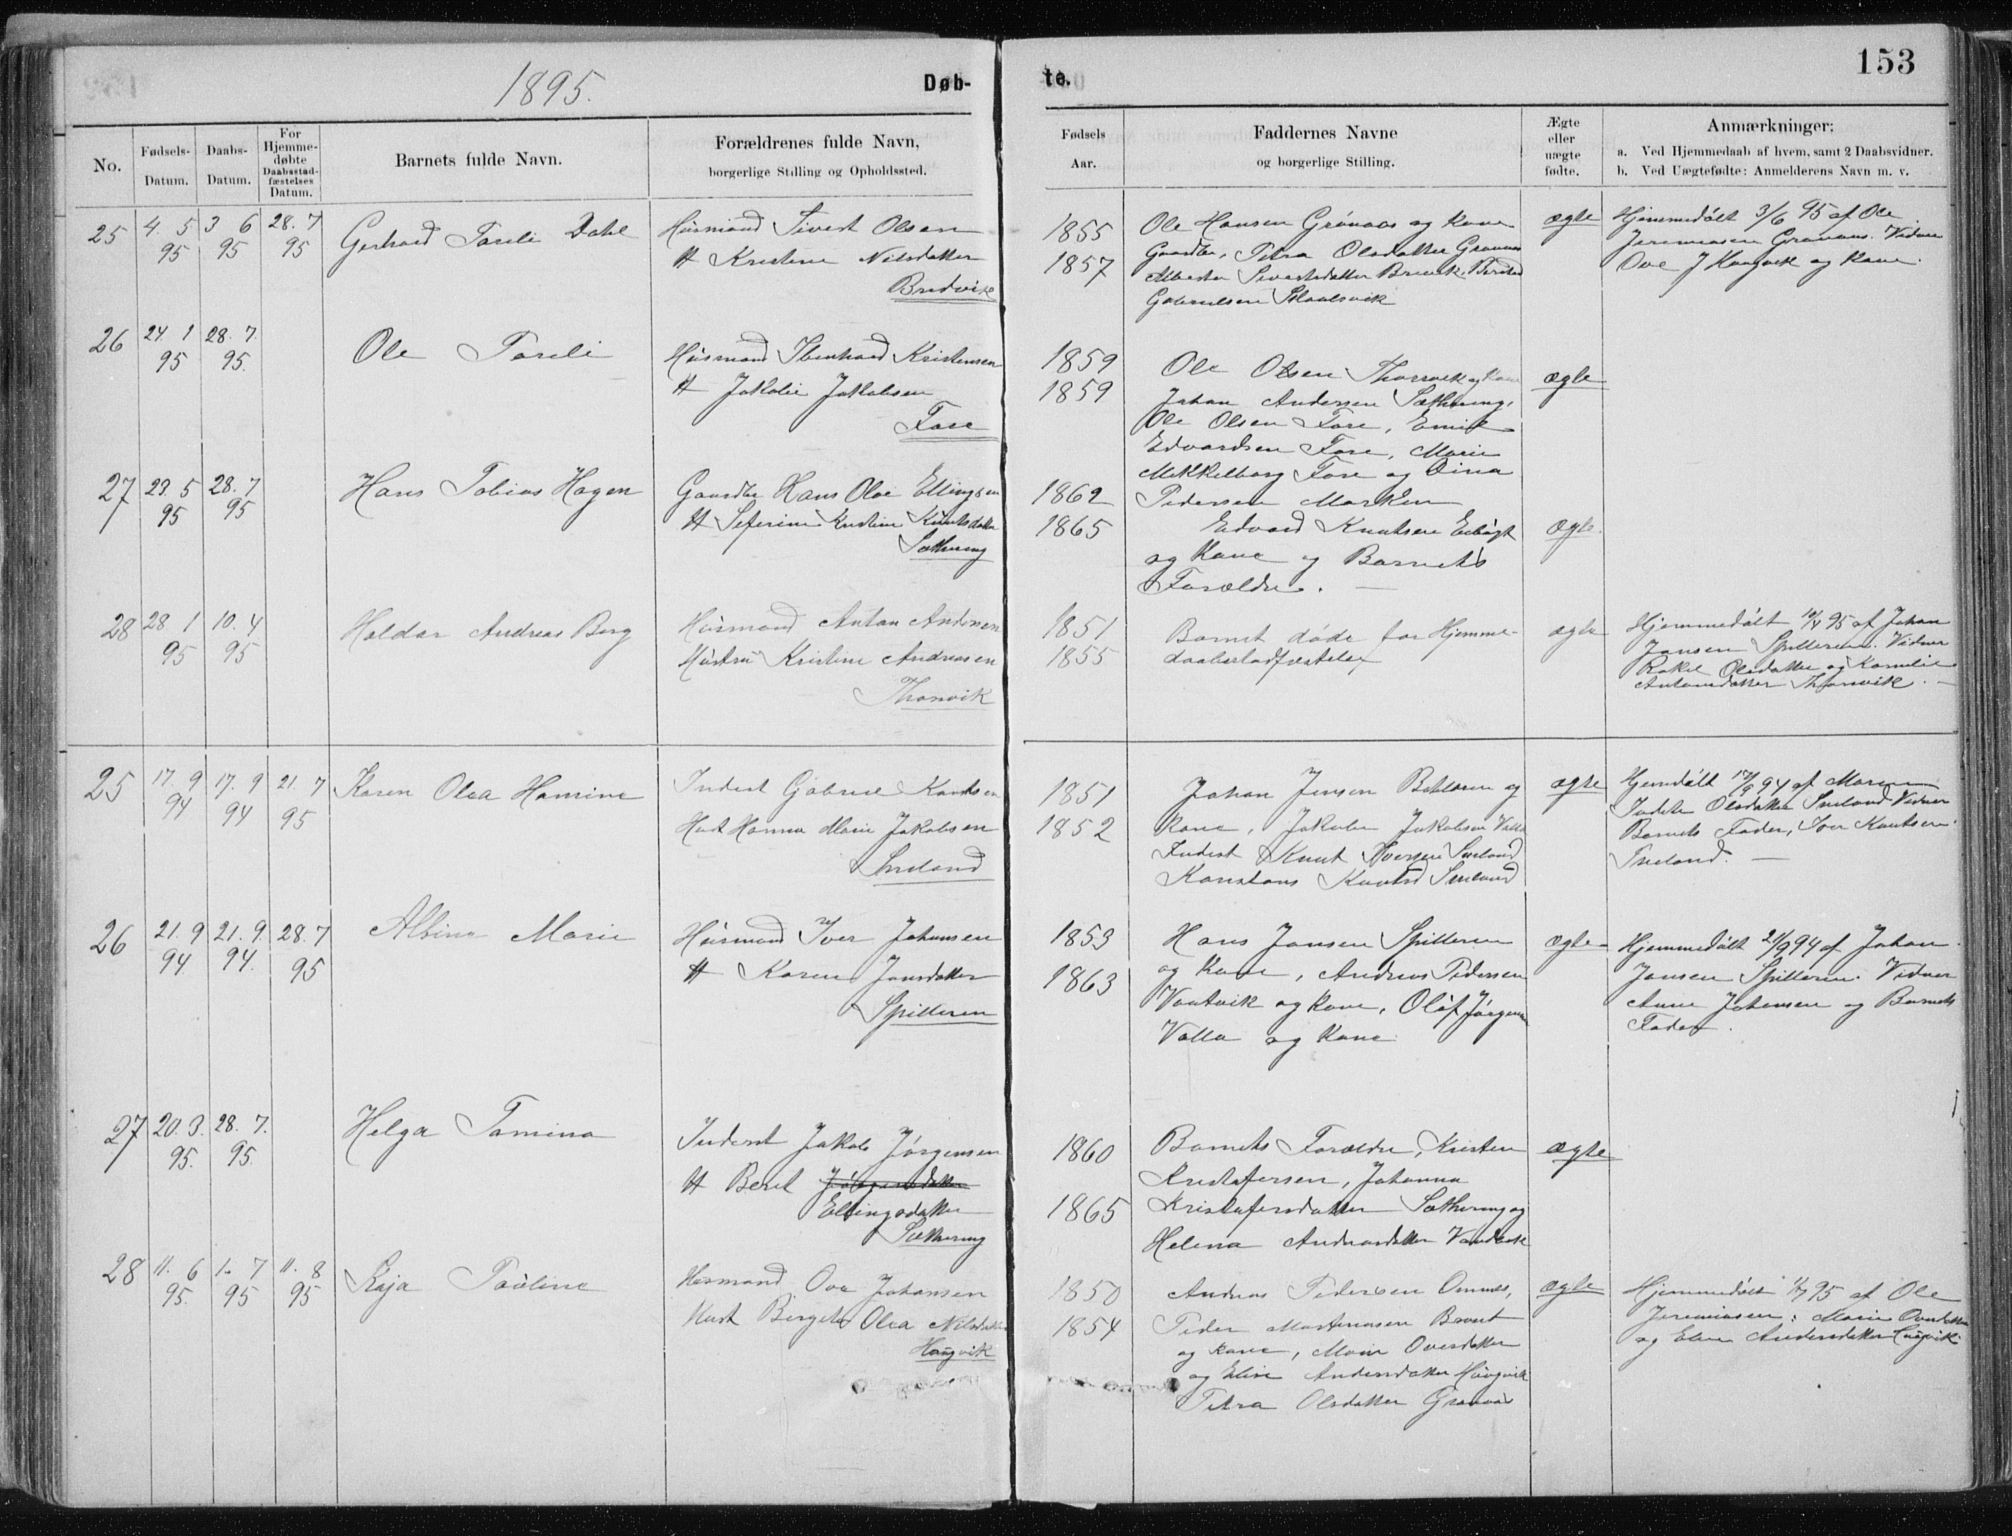 1895.
Døb-
te.
153
No.
Fødsels-
Datum.
Daabs-
Datum.
For
Hjemme-
døbte
Daabsstad-
fæstelses
Datum.
Barnets fulde Navn.
Forældrenes fulde Navn,
borgerlige Stilling og Opholdssted.
Fødsels
Aar.
Faddernes Navne
og borgerlige Stilling.
Ægte
eller
uægte
fødte.
Anmærkninger:
a. Ved Hjemmedaab af hvem, samt 2 Daabsvidner.
b. Ved Uægtefødte: Anmelderens Navn m. v.
25 4. 5 3 6 28. 7
95 95 95
Dahl
Husmand Sivert Olsen
H Kristine Nilsdatter
Bredvik
1855
1857
Ole Hansen Grønaas og Kone
Gaardbr, Petra Olsdatter
Sivertsdatter
ægte
Hjemmedøbt 3/6 95 af Ole
Jeremiasen Vidner
Ove J Haugvik og Kone.
26 24. 1 28. 7.
95 95.
Ole
Husmand Kristensen
H Jakobsen
Fore
1859
1859
Ole Olsen Thorsvik og Kone
Johan Andersen Sæthering,
Ole Olsen Fore, Emil
Edvardsen Fore, Marie
Mikkelborg Fore og Dina
Pedersen Marken
ægte
27 29. 5 28. 7
95 95
Hans Tobias Hagen
Gaardbr Hans Olai Ellingsen
H Seferine Kristine Knutsdatter
Sæthering
1862
1865
Edvard Knutsen
og Kone og Barnets
Forældre.
ægte.
28 28. 1 10. 4
95 95
Haldor Andreas Berg
Husmand Anton Andersen
Hustru Kristine Andreasen
Thonvik
1851
1855
Barnet døde før Hjemme-
daabsstadfæstelse
ægte
Hjemmedøbt 10/4 95 af Johan
Jansen Spilderen. Vidner
Rakel Olsdatter og Kornelie
Antonsdatter Thonvik.
25 17. 9 17. 9 21. 7
94 94 95
Karen Olea Hansine
Inderst Gabriel Knutsen
Hust Hanna Marie Jakobsen
1851
1852
Johan Jensen og
Kone, Jakob Jakobsen Valla
Inderst Knut Iversen
Konstans
ægte
Hjemdøbt 17/9 94 af Maren
Olsdatter Vidner
Barnets Fader, Iver Knutsen
26 21. 9 21. 9. 28. 7
94 94. 95
Albina Marie
Husmand Iver Johansen
H Karen Jansdatter
Spilderen
1853
1863
Hans Jansen Spilderen
og Kone, Andreas Pedersen
og Kone, Olaf Jørgensen
Valla og Kone
ægte
Hjemmedøbt 21/9 94 af Johan
Jansen Spilderen. Vidner
Anne Johansen og Barnets
Fader.
27 20. 3. 28. 7.
95. 95.
Helga Tomina
Inderst Jakob Jørgensen
H Beret
Ellingsdatter
Sæthering
1860
1865
Barnets Forældre, Kristen
Kristofersen, Johanna
Kristofersdatter Sæthering og
Helena Andreasdatter
ægte
28 11. 6 1. 7 11. 8
95. 95 95
Kaja Pauline
Husmand Ove Johansen
Hust Olea Nilsdatter
Haugvik
1850
1854
Andreas Pedersen
Peder Martinusen
og Kone, Marie Ovesdatter
og Elise Andersdatter Haugvik
Petra Olsdatter
ægte
Hjemmedøbt 1/7 95 af Ole
Jeremiasen; Marie Ovesdatter
og Elise Andersdatter Haugvik.